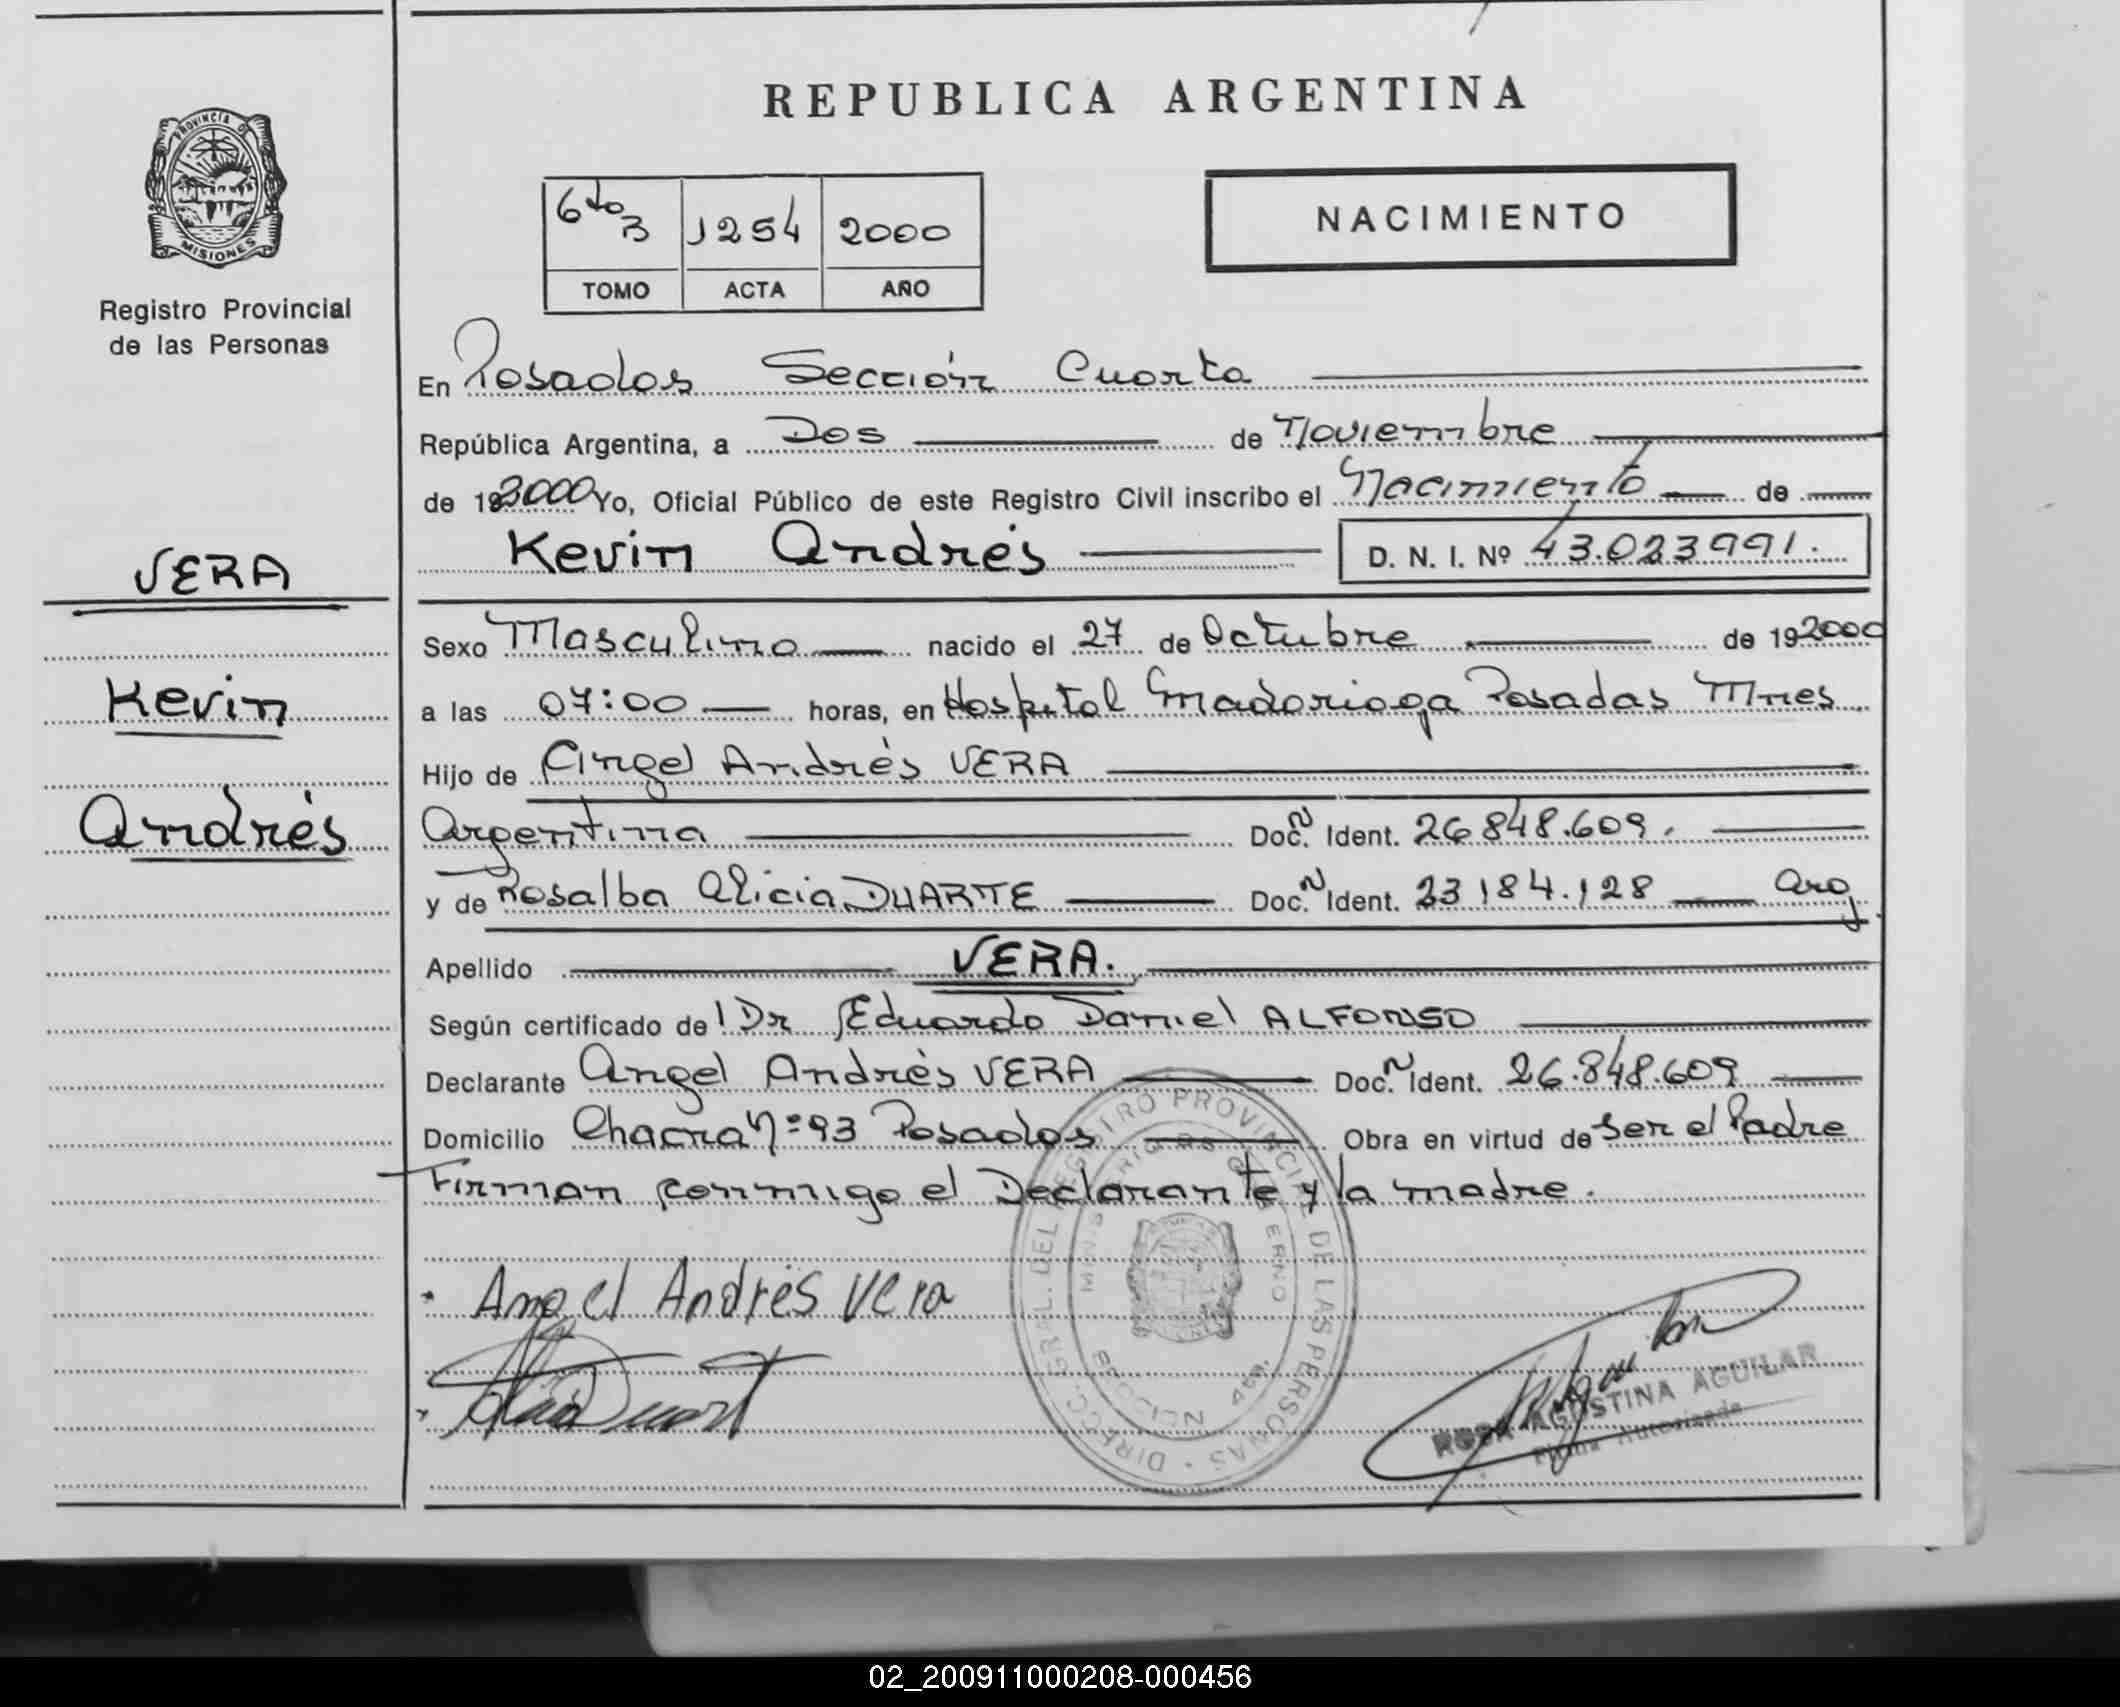 REPUBLICA ARGENTINA
PROVINCIA DE
MISIONES
Registro Provincial
de las Personas
6to B 1254 2000
TOMO ACTA AÑO
NACIMIENTO
En Posadas Sección Cuarta
República Argentina, a Dos de Noviembre
de 19 2000 Yo, Oficial Público de este Registro Civil inscribo el Nacimiento de
Kevin Andrés D. N. I. Nº 43.023991.
VERA
Kevin
Andrés
Sexo Masculino nacido el 27 de Octubre de 19 2000
a las 07:00 horas, en Hospital Madariaga Posadas Mnes
Hijo de Angel Andrés VERA
Argentina Doc. N Ident. 26848.609.
y de Rosalba Alicia DUARTE Doc. N Ident. 23184.128 Arg
Apellido VERA.
Según certificado de l Dr Eduardo Daniel ALFONSO
Declarante Angel Andrés VERA Doc. N Ident. 26.848.609
Domicilio Chacra Nº 93 Posadas Obra en virtud de Ser el Padre
Firman conmigo el Declarante y la madre.
Angel Andrés Vera
DIRECC. GRAL. DEL REGISTRO PROVINCIAL DE LAS PERSONAS
MINISTERIO DE GOBIERNO
SECCION 4ta.
ROSA AGUSTINA AGUILAR
Firma Autorizada
02_200911000208-000456